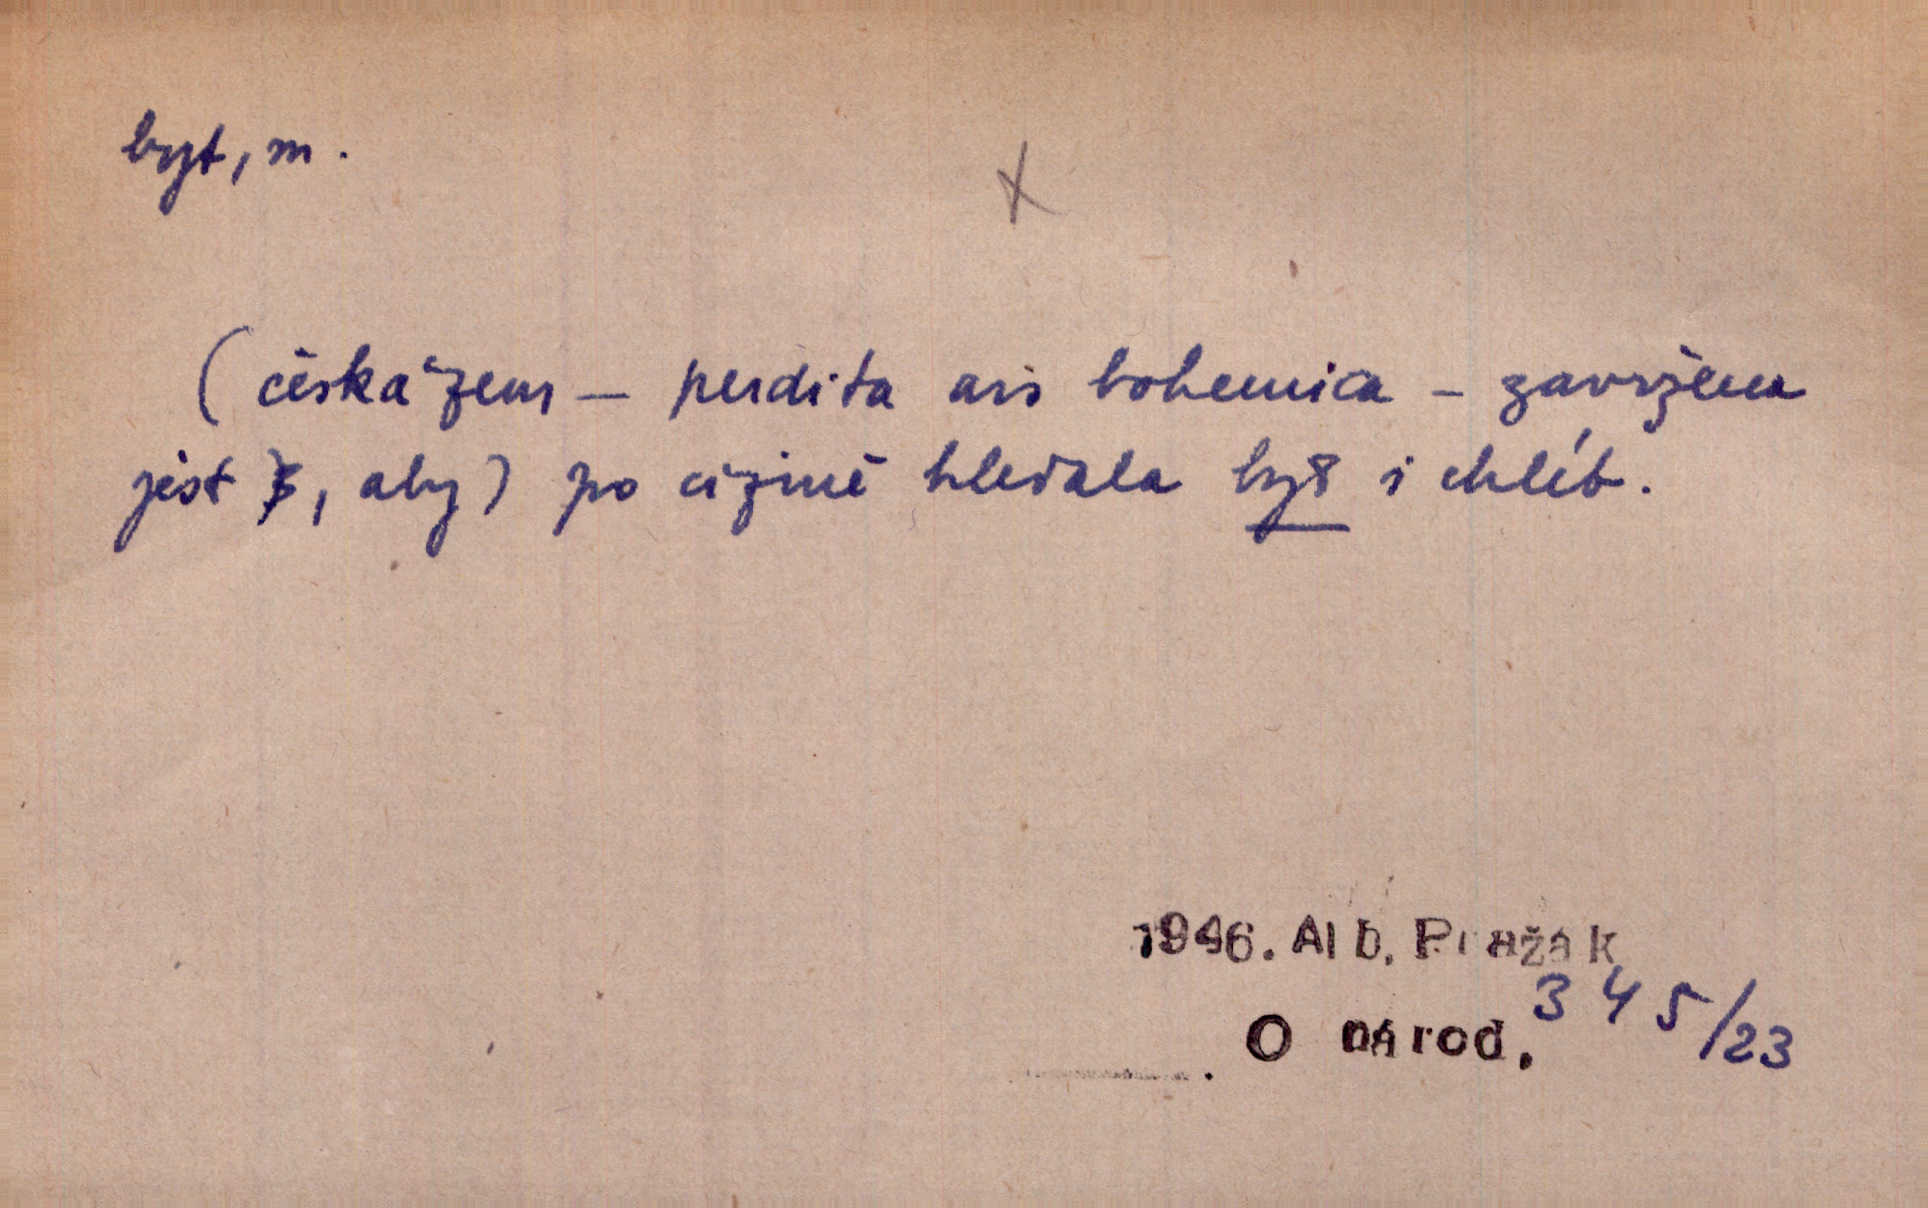 byt, m.
X
(česká zem — perdita ars bohemica – zavržena
jest, aby) po cizině hledala byt i chléb.
1946. Alb. Pražák
O národ. 345/23